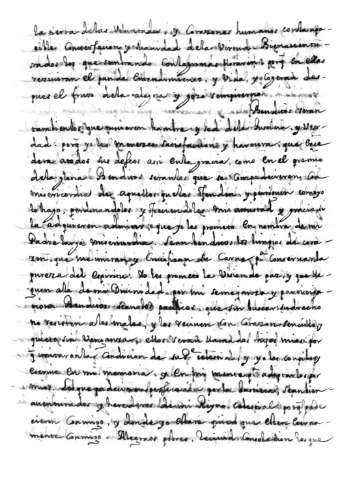 la tierra de las Voluntades, y Corazones humanos con la apa
cible Conversacion, y Suavidad de la Virtud. Bienaventu
rados los que sembrando con lagrimas lloraren, porq en ellas
recivirán el pan de entendimiento, y Vida, y cogeran des
pues el fruto de la alegria y gozo sempiterno.
Benditos serán
tambien los que tuvieren hambre y sed de la Justicia, y Ver
dad: porq yo les mereceré Satisfaccion y hartura, que Exce
derá a todos sus deseos asi en la gracia, como en el premio
de la gloria. Benditos serán los que se Compadecieren con
misericordia de aquellos que los ofenden, y persiguen como yo
lo hago, perdonandoles y ofreciendoles mi amistad y gracia si
la quieren admitir, que yo les prometo En nombre de mi
Padre larga misericordia. Sean benditos los limpios de cora
zon, que me imitan y Crucifican su Carne pa Conservar la
pureza del Espiritu. Yo les prometo la Vision de paz, y que lle
guen a la de mi Divinidad por mi semejanza y participa
cion. Benditos sean los pacificos, que sin buscar su derecho
no resisten a los malos, y los reciven con Corazon sencillo, y
quieto, sin Venganza, ellos serán llamados hijos mios porq
q imitan la Condicion de su Pe celestial, y yo los concibo y
escrivo En mi memoria, y En mi mente pa adoptarlos por
mios. Los que padecieren persecucion por la Justicia, sean bien
aventurados y herederos de mi Reyno Celestial porq pade
cieron Conmigo, y donde yo Estoy quiero que esten Eterna
mente Conmigo. Alegraos pobres, recivid Consolacion los que